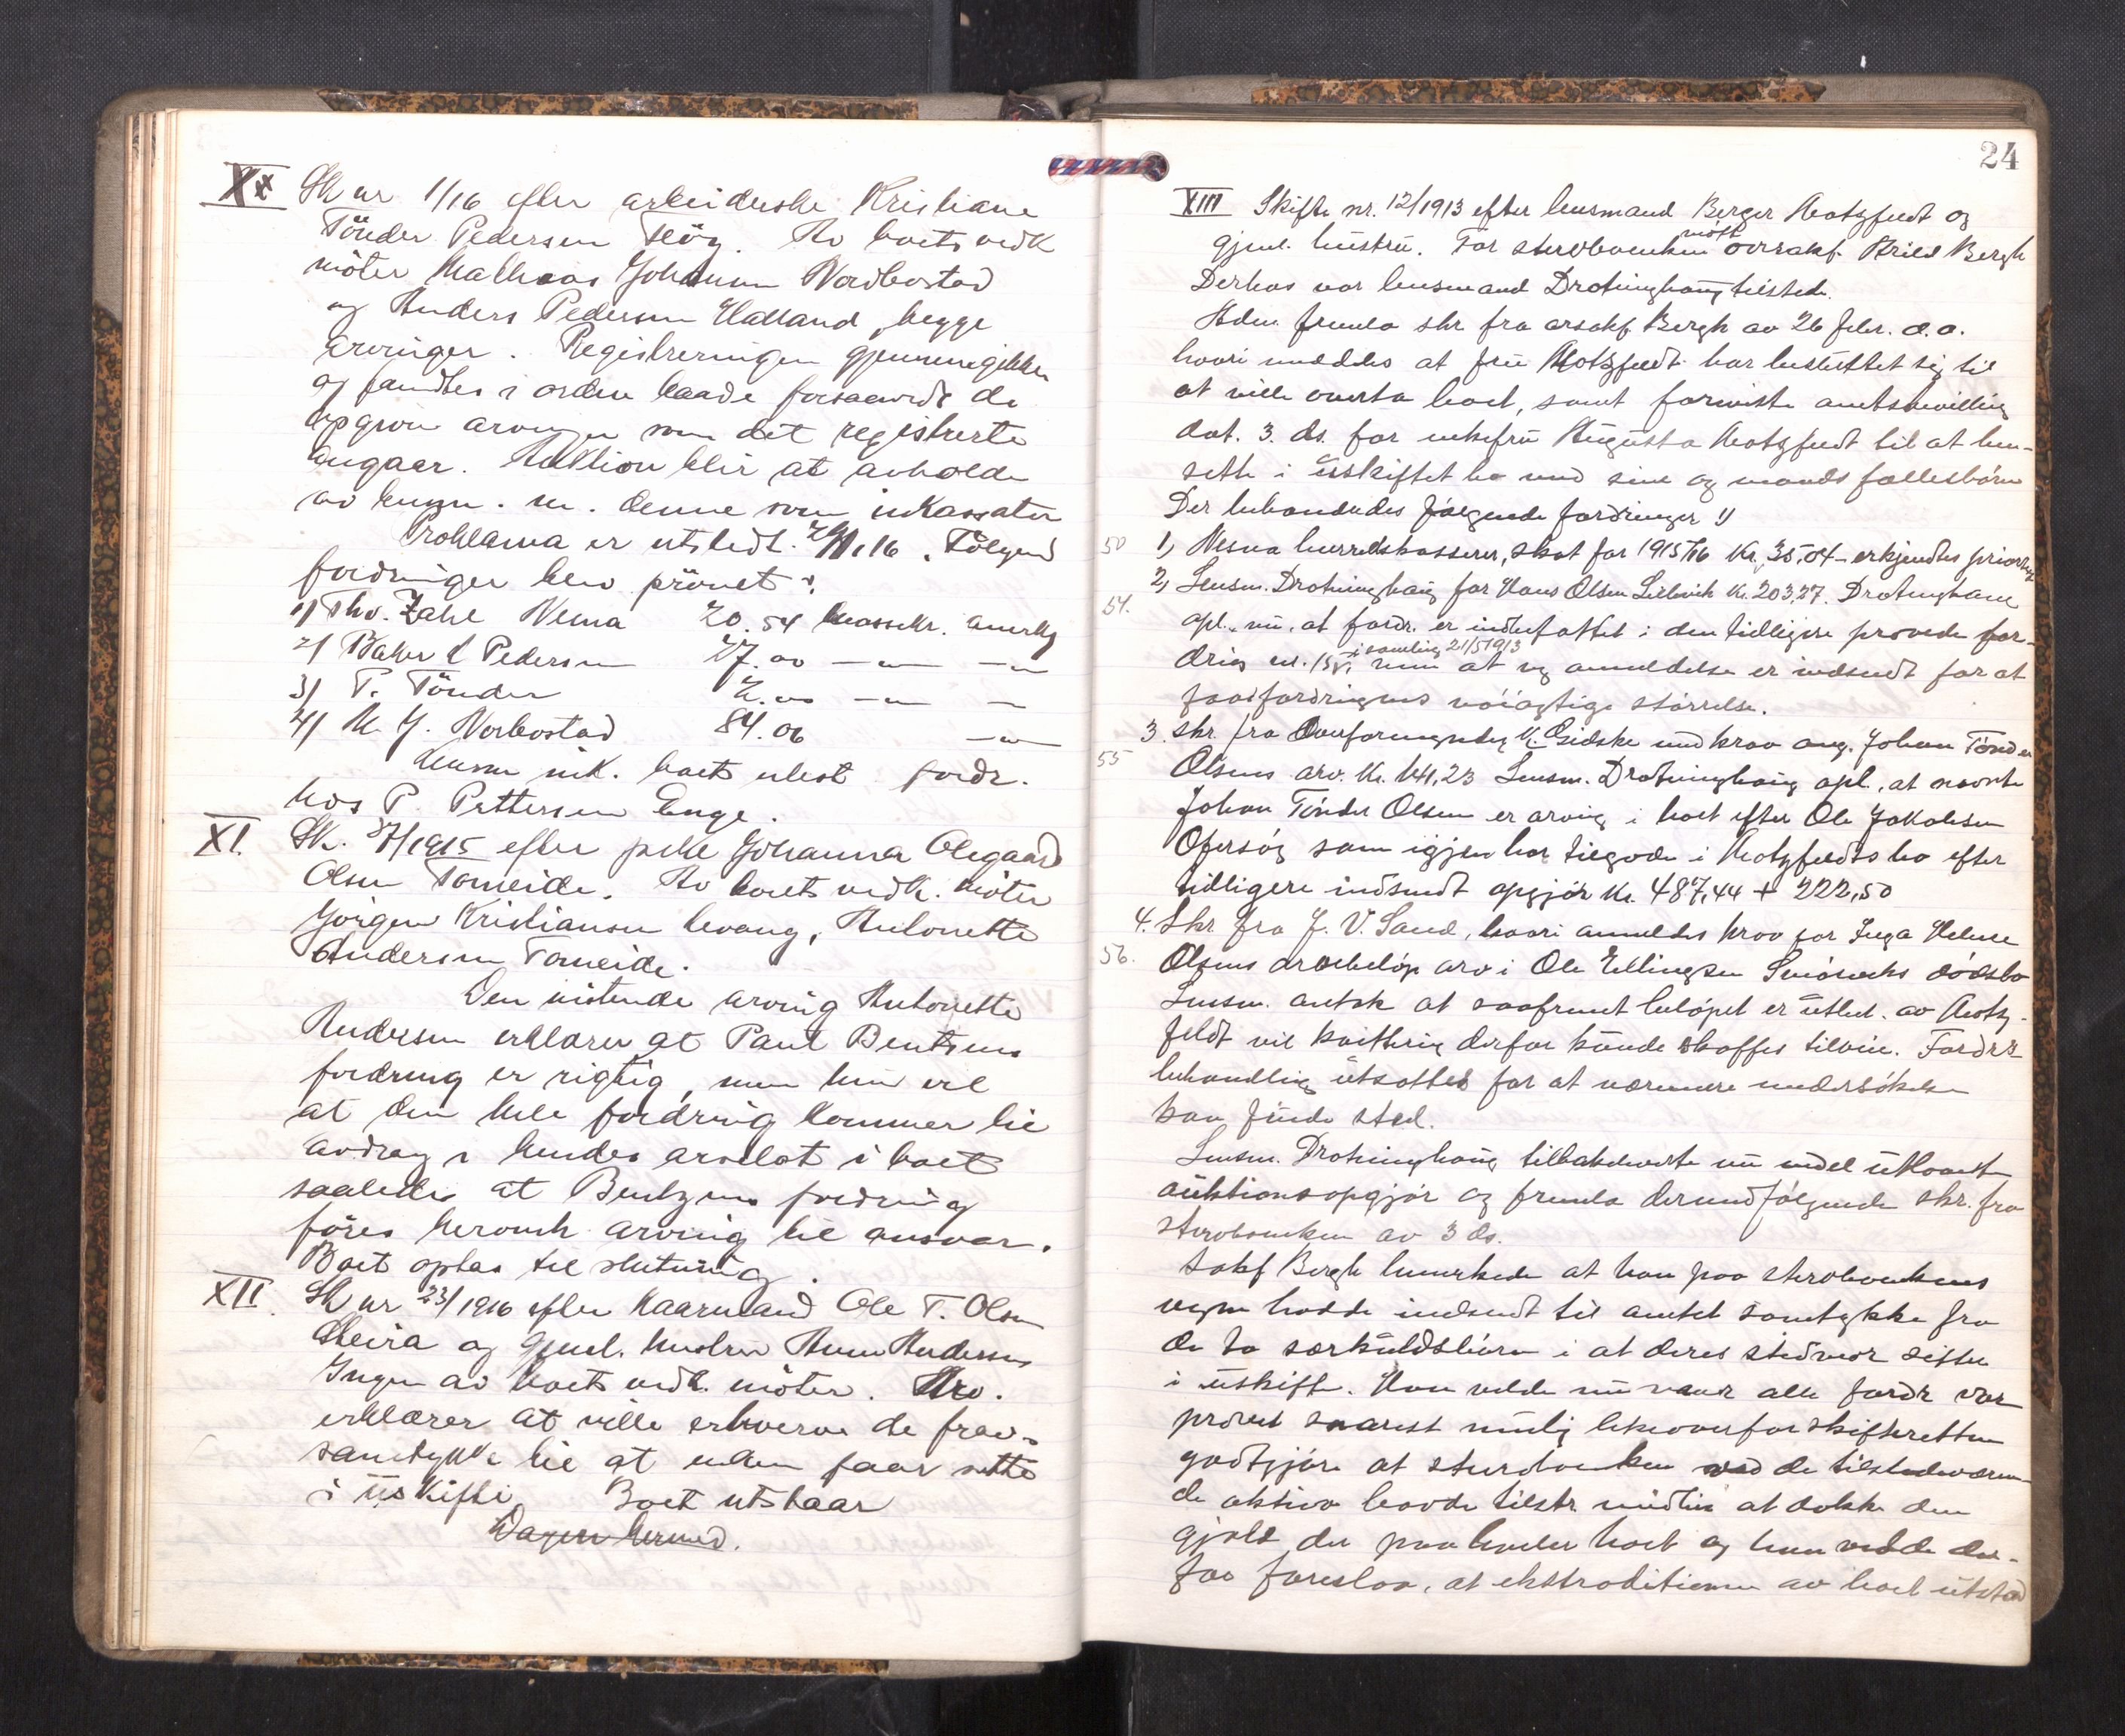 X
Sk nr 1/16 efter arbeiderske Kristiane
Tönder Pedersen Hög. Av boets vedk
möter Mathæas Johansen Nordbostad
og Anders Pedersen Halland, begge
arvinger. Registreringen gjennemgikkes
og fandtes i orden baade forsaavidt de
opgivne arvinger som det registrerte
angaar. Auktion blir at avholde
av lensm. m. denne som inkassator
Proklama er utstedt. Følgend
fordringer blev prövet:
1) Thv. Zahl Nesna 20.54 anerkj
2) Pedersen 27.00 — " — "
3) P. Tönder 2.00 — " —
4) M. J. Norbostad 84.06 — " —
Lensm ink. boets utest fordr.
hos P. Pettersen Enge.
XI. Sk. 37/1915 efter pike Johanna Olegaard
Olsen Tomeide. Av boets vedk. möter
Jörgen Kristiansen Levang, Antonette
Andersen Tomeide.
Den mötende arving Antonette
Andersen erklærer at Paul Bentzens
fordring er rigtig, men hun vil
at den hele fordring kommer til
avdrag i hendes arvelot i boet
saaledes at Bentzens fordring
föres arving til ansvar.
Boet optas til slutning.
XII. Sk nr 23/1916 efter Gaarmand Ole T. Olsen
Sleira og gjenl. hustru Anne Andersen
Ingen av boets vedk. möter. Arv.
erklærer at ville erhverve de frav.
samtykke til at enken faar sitte
i uskifte. Boet utstaar
24
XIII Skifte nr. 12/1913 efter lensmand Berger Hotzfeldt og
gjenl. hustru. For strobanken mött overrakf. Bergh
Derhos var lensmand Drotninghaug tilstede.
Adm. fremla skr. fra orsakf. Bergh av 26 febr. d.a.
hvori meddeles at fru Hotzfeldt har besluttet sig til
at ville overta boet, samt forviste amtsbevilling
dat. 3. ds. for enkefru Augusta Hotzfeldt til at hen-
sitte i uskiftet bo med sine og mands fællesbörn
Der behandledes følgende fordringer:
50 1, Nesna herredskasserer, skat for 1915/16 Kr. 35.04 - erkjendtes prioritet
54. 2, Lensm. Drotninghaug for Hans Olsen Kr. 203,27. Drotninghaug
opl. nu, at fordr. er indbefattet i den tidligere prövede for-
dring nr. 15 i samling 21/5 1913, men at ny anmeldelse er indsendt for at
faa fordringens nöiagtige störrelse.
55 3. skr. fra Overformynder K. med krav ang. Johan Tönder
Olsens arv. Kr. 141,23 Lensm. Drotninghaug opl., at nævnte
Johan Tönder Olsen er arving i boet efter Ole Jakobsen
som igjen har tilgode i Hotzfeldts bo efter
tidligere indsendt opgjör Kr. 487,44 + 222,50
56. 4. Skr fra J. V. Sand, hvori anmeldes krav for Inga Helene
Olsens arvebelöp arv i Ole Ellingsen dödsbo
Lensm. antok at saafremt belöpet er utbet. av Hotz-
feldt vil kvittering derfor kunde skaffes tilveie. Fordrs
behandling utsattes for at nærmere undersökelse
kan finde sted.
Lensm. Drotninghaug tilbakeleverte nu endel utlaante
auktionsopgjör og fremla dermedfölgende skr. fra
strobanken av 3 ds.
Sakf Bergh bemerkede at han paa strobankens
vegne hadde indsendt til amtet samtykke fra
de to særkuldsbörn i at deres stedmor sitter
i uskifte. Han vilde nu naar alle fordr var
prövet snarest mulig likeoverfor skifteretten
godtgjöre at strobanken ved de tilstedeværen-
de aktiva havde tilstr. midler at dekke den
gjæld der paahviler boet og han vilde der-
for foreslaa, at ekstraditionen av boet utstod